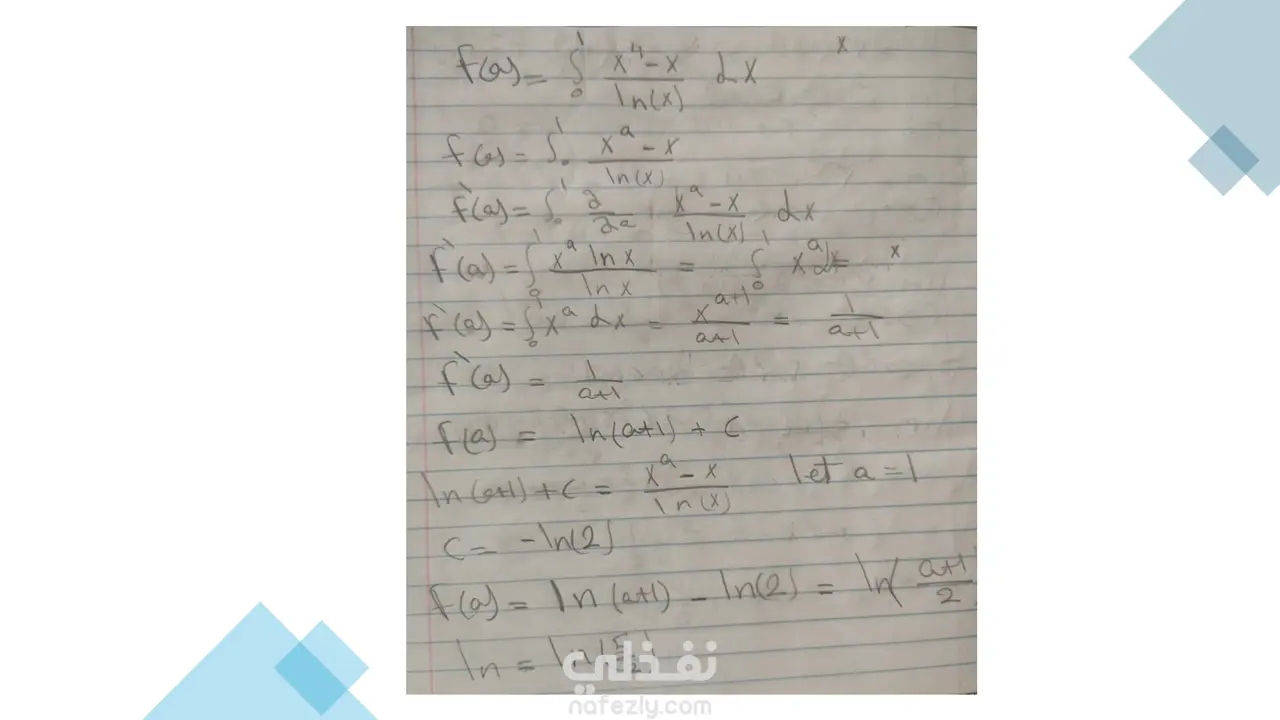 f(a) = ∫₀¹ (x⁴ - x)/ln(x) dx x
f(a) = ∫₀¹ (xᵃ - x)/ln(x)
f`(a) = ∫₀¹ ∂/∂a (xᵃ - x)/ln(x) dx
f`(a) = ∫₀¹ (xᵃ ln x)/ln x = ∫₀¹ xᵃ dx x
f`(a) = ∫₀¹ xᵃ dx = xᵃ⁺¹/(a+1) = 1/(a+1)
f`(a) = 1/(a+1)
f(a) = ln(a+1) + c
ln(a+1) + c = (xᵃ - x)/ln(x) let a = 1
c = -ln(2)
f(a) = ln(a+1) - ln(2) = ln(a+1/2)
ln = ln
نفذلي
nafezly.com